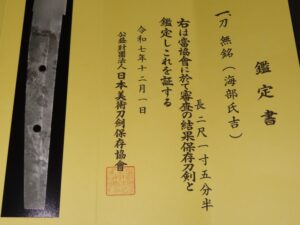 鑑定書
一、刀 無銘（海部氏吉）
長二尺一寸五分半
右は當協會に於て審査の結果保存刀剣と
鑑定しこれを証する
令和七年十二月一日
公益財團法人日本美術刀剣保存協會